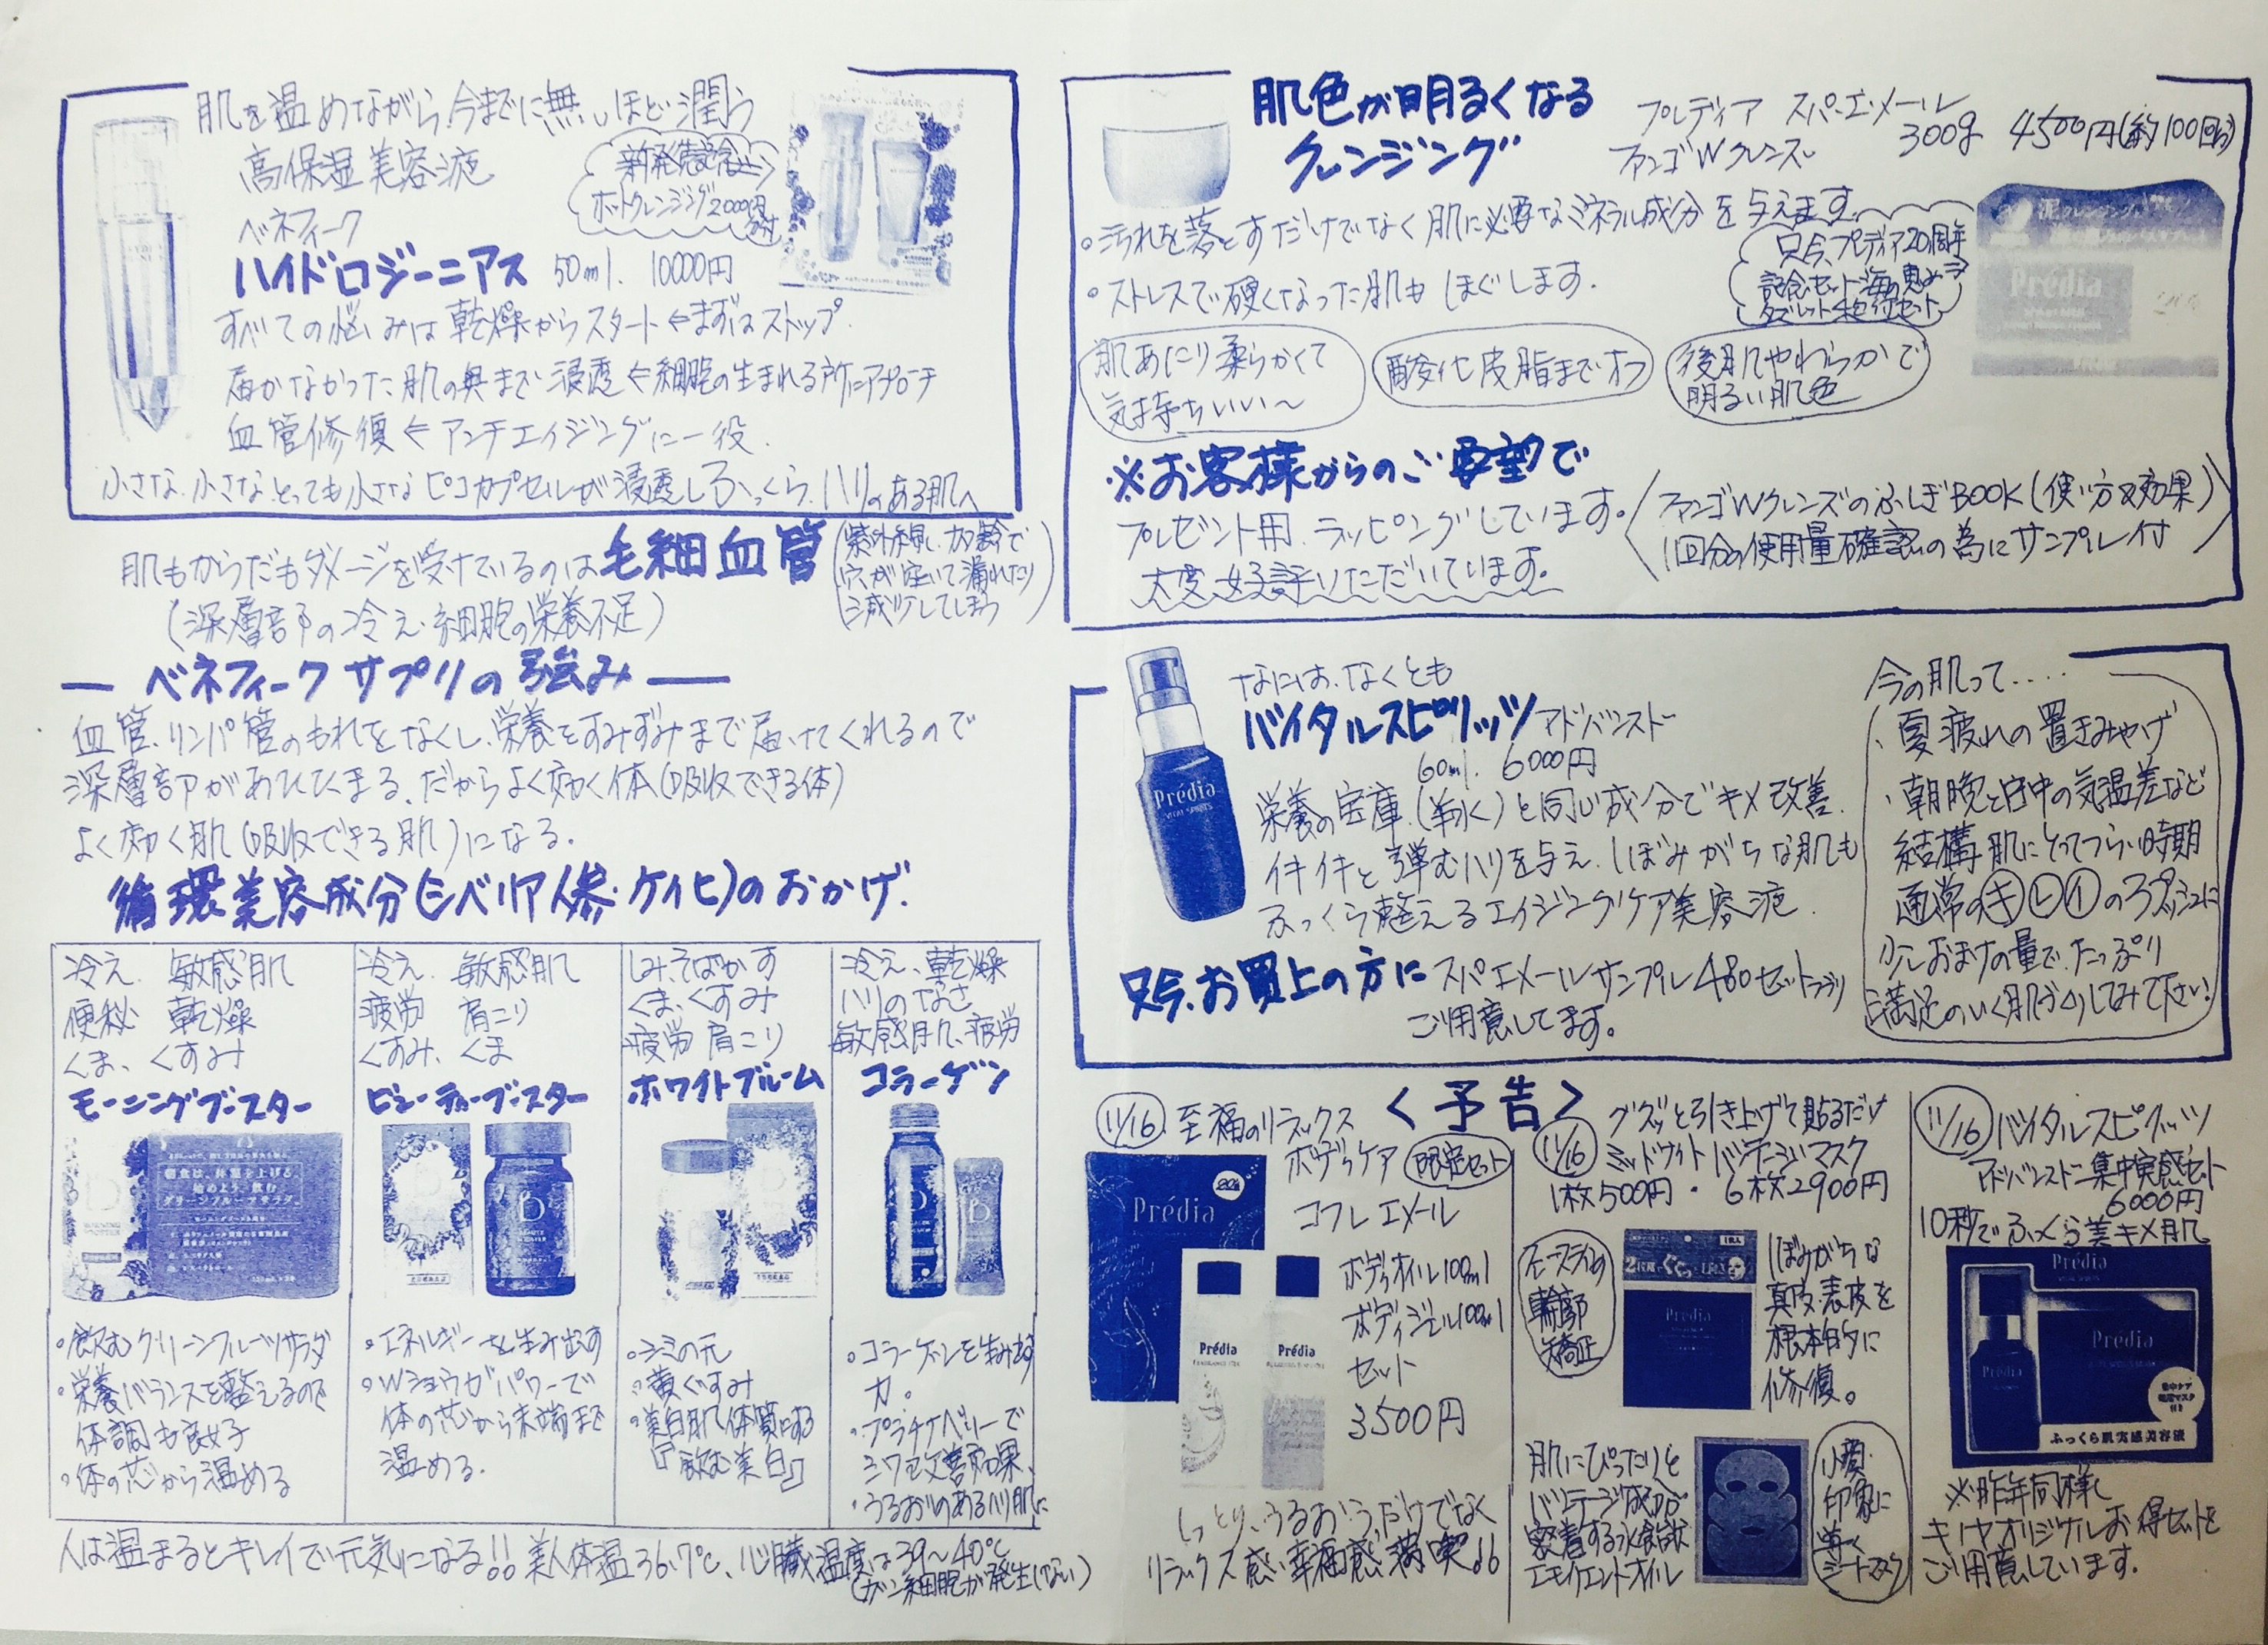 肌を温めながら、今までに無いほど潤う
高保湿美容液
新発売記念
ホットクレンジング2000円
ベネフィーク
ハイドロジーニアス 50ml. 10000円
すべての悩みは乾燥からスタート←まずはストップ.
届かなかった肌の奥まで浸透←細胞の生まれる所にアプローチ
血管修復←アンチエイジングに一役.
小さな、小さな、とっても小さなピコカプセルが浸透しふっくら、ハリのある肌へ
肌もからだもダメージを受けているのは毛細血管
(紫外線、加齢で
穴が空いて漏れたり
減少してしまう)
(深層部の冷え・細胞の栄養不足)
― ベネフィーク サプリの強み ―
血管、リンパ管のもれをなくし、栄養をすみずみまで届けてくれるので
深層部があたたまる、だからよく効く体(吸収できる体)
よく効く肌(吸収できる肌)になる.
循環美容成分(シベリア人参・ケイヒ)のおかげ.
冷え. 敏感肌
便秘 乾燥
くま、くすみ
モーニングブースター
・飲むグリーンフルーツサラダ
・栄養バランスを整えるので
体調も良好
・体の芯から温める
冷え. 敏感肌
疲労 肩こり
くすみ、くま
ビューティーブースター
・エネルギーを生み出す
・Wショウガパワーで
体の芯から末端まで
温める.
しみ、そばかす
くま、くすみ
疲労 肩こり
ホワイトブルーム
・シミの元
・黄ぐすみ
・美白肌体質にする
『飲む美白』
冷え、乾燥
ハリのなさ
敏感肌、疲労
コラーゲン
・コラーゲンを生み出す
力。
・プラチナベリーで
シワ改善効果、
・うるおいのあるハリ肌に
人は温まるとキレイで元気になる!! 美人体温36.7℃、心臓温度は39〜40℃
(ガン細胞が発生しない)
肌色が明るくなる
クレンジング
プレディア スパ・エ・メール
ファンゴWクレンズ
300g 4500円(約100回分)
・汚れを落とすだけでなく肌に必要なミネラル成分を与えます.
・ストレスで硬くなった肌もほぐします.
只今、プレディア20周年
記念セット 海の恵み
タブレット4包付セット
Prédia
肌あたり柔らかくて
気持ちいい〜
酸化皮脂までオフ
後肌やわらかで
明るい肌色
※お客様からのご要望で
プレゼント用、ラッピングしています。
大変好評いただいています。
ファンゴWクレンズのふしぎBOOK(使い方&効果)
1回分の使用量確認の為にサンプル付
なにはなくとも
バイタルスピリッツ アドバンスト
60ml. 6000円
Prédia
栄養の宝庫.(羊水)と同じ成分でキメ改善.
イキイキと弾むハリを与え、しぼみがちな肌も
ふっくら整えるエイジングケア美容液.
只今、お買上の方に スパエメールサンプル480セットプラリ
ご用意してます。
今の肌って....
、夏疲れの置きみやげ
、朝晩と日中の気温差など
結構肌にとってつらい時期
通常のキレイの3プッシュに
少しおまけの量で、たっぷり
満足のいく肌づくりしてみて下さい!
<予告>
11/16 至福のリラックス
ボディケア 限定セット
コフレ エメール
Prédia
Prédia
Prédia
ボディオイル100ml
ボディジェル100ml
セット
3,500円
しっとり、うるおうだけでなく
リラックス感、幸福感満喫
11/16
グググッと引き上げて貼るだけ
ミッドナイト バンテージマスク
1枚500円・6枚2900円
輪郭
矯正
Prédia
しぼみがちな
真皮・表皮を
根本的に
修復。
肌にぴったりと
バンテージ成分が
密着する
エモリエントオイル
小顔
印象に
導く
シートマスク
11/16 バイタルスピリッツ
アドバンスト 集中実感セット
6000円
10秒でふっくら美キメ肌
Prédia
Prédia
Prédia
ふっくら肌実感美容液
※昨年同様に
キノヤオリジナルお得セットを
ご用意しています.